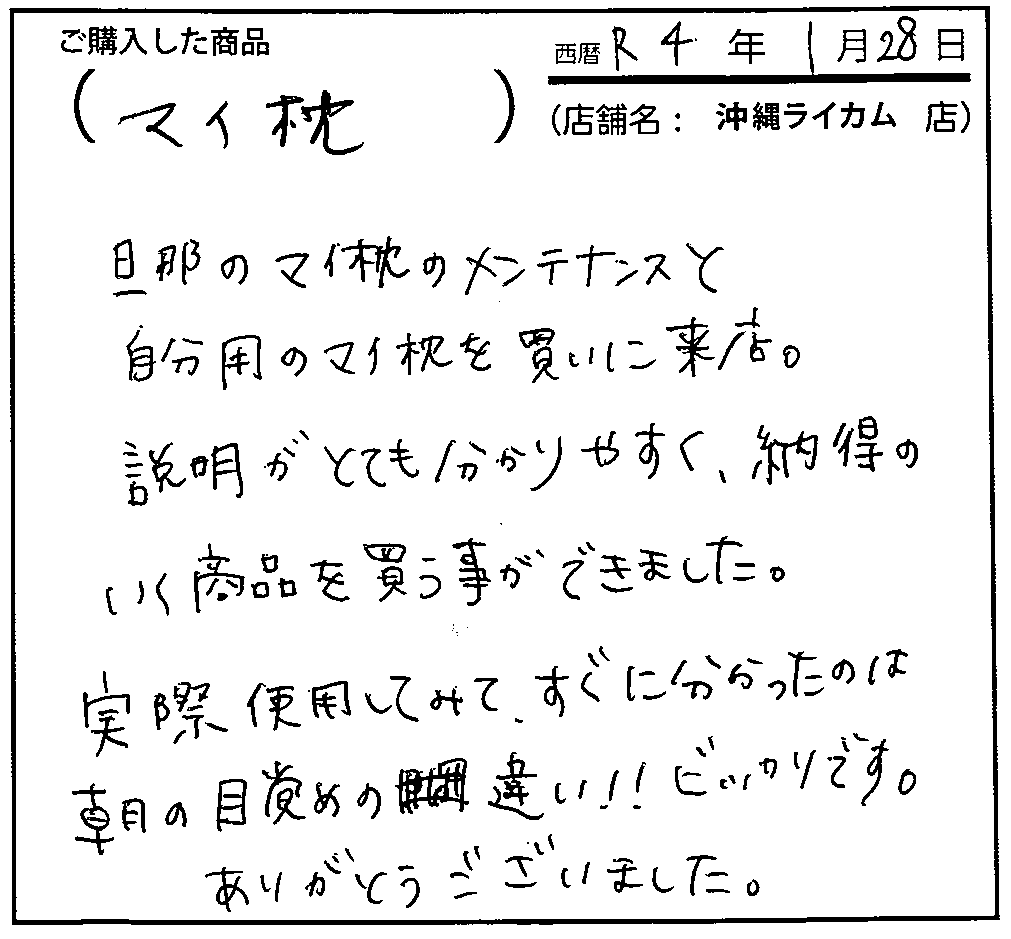 ご購入した商品
西暦 R 4 年 1月28日
(マイ枕)
(店舗名: 沖縄ライカム 店)
旦那のマイ枕のメンテナンスと
自分用のマイ枕を買いに来店。
説明がとても分かりやすく、納得の
いく商品を買う事ができました。
実際使用してみて、すぐに分かったのは
朝の目覚めの違い!! ビックリです。
ありがとうございました。